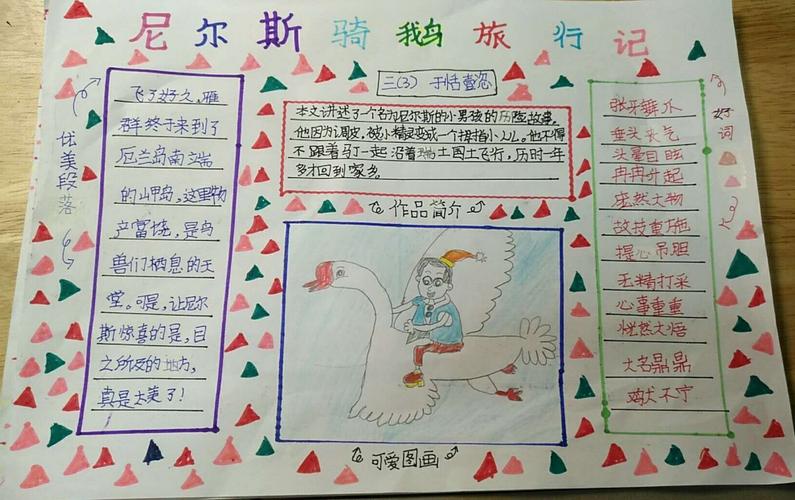 尼尔斯骑鹅旅行记
三(3) 于恬
优美段落
飞了好久,雁
群终于来到了
厄兰岛南端
的山甲岛,这里物
产富饶,是鸟
兽们栖息的天
堂。可是,让尼尔
斯惊喜的是,目
之所及的地方,
真是太美了!
本文讲述了个名为尼尔斯的小男孩的历险故事。
他因为调皮,被小精灵变成一个拇指小人儿。他不得
不跟着马丁一起沿着瑞士国土飞行,历时一年
多才回到家乡
作品简介
可爱图画
好词
张牙舞爪
垂头丧气
头晕目眩
冉冉升起
庞然大物
故技重施
提心吊胆
无精打采
心事重重
恍然大悟
大名鼎鼎
鸡犬不宁